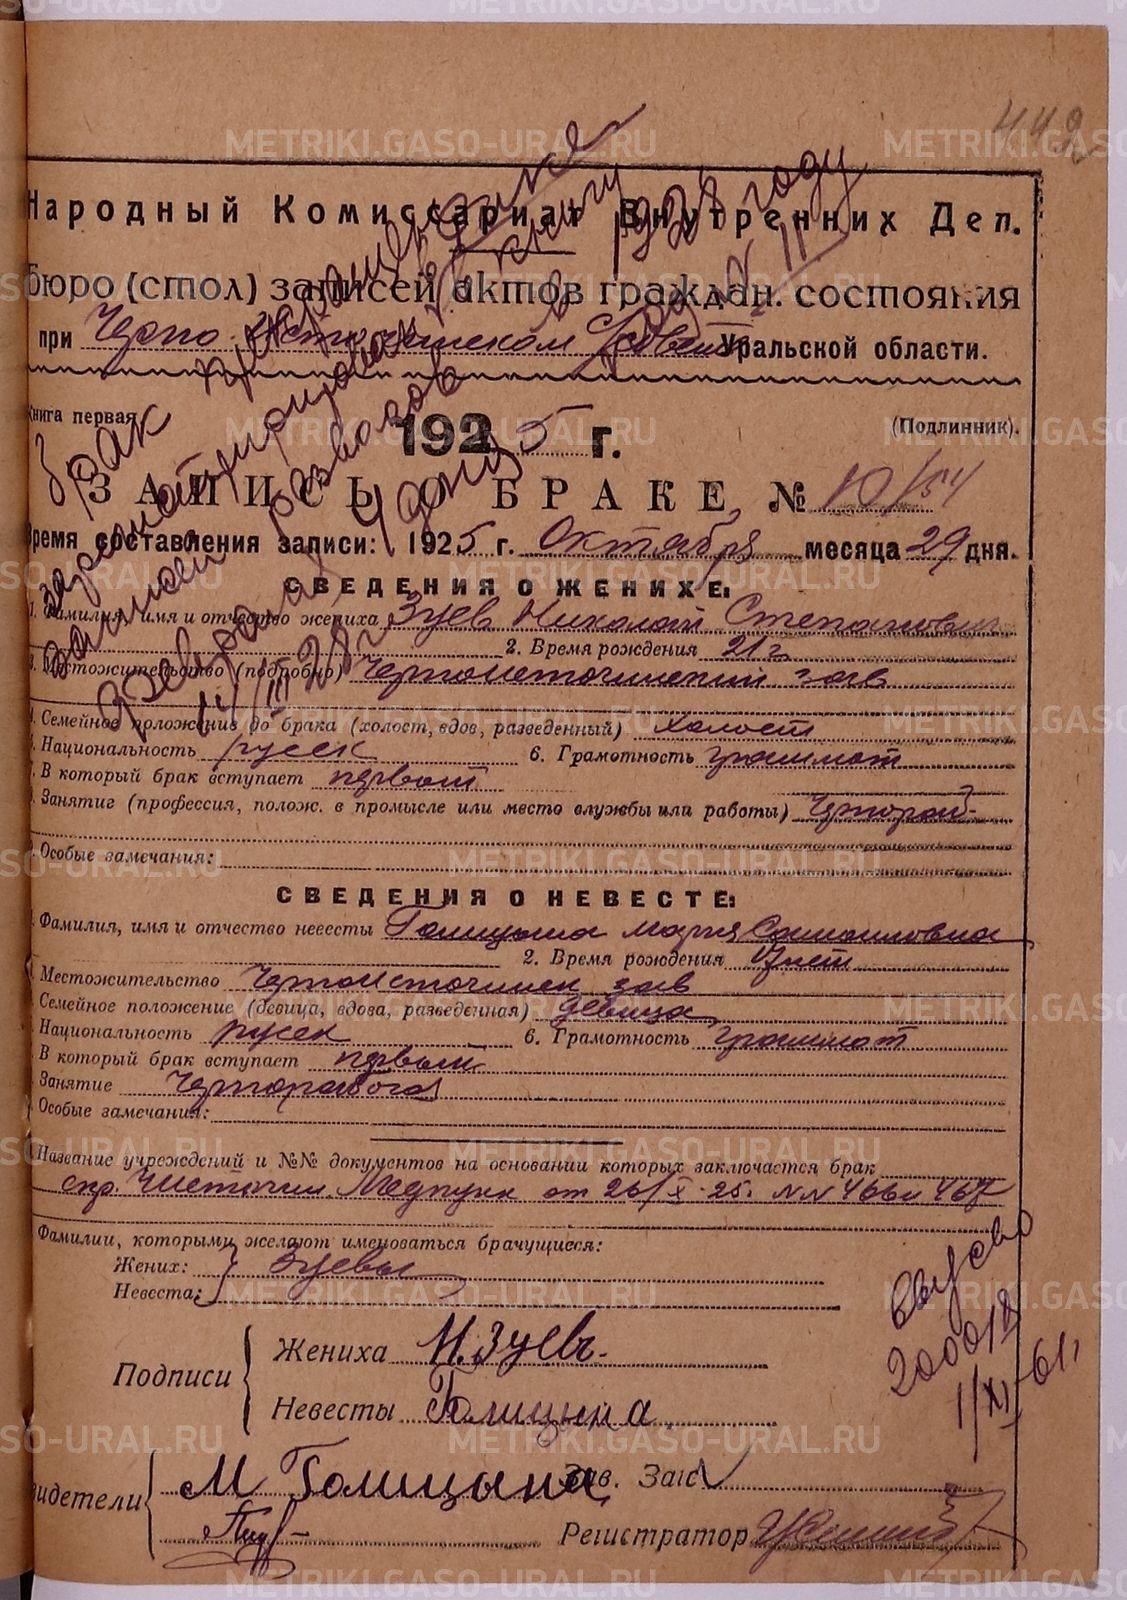 442
Народный Комиссариат Внутренних Дел.
бюро (стол) записей актов граждан. состояния
при Черно-Источинском Совете Уральской области.
Книга первая
(Подлинник).
1925 г.
ЗАПИСЬ О БРАКЕ № 10/54
Время составления записи: 1925 г. Октября месяца 29 дня.
Брак прекращен
зарегистрирован в книгу
записей разводов в 1928 году
9 февраля 4 дня № 11
СВЕДЕНИЯ О ЖЕНИХЕ:
1. Фамилия, имя и отчество жениха Зуев Николай Степанович
2. Время рождения 21 г.
3. Местожительство (подробно) Черноисточинский зав
4. Семейное положение до брака (холост, вдов, разведенный) холост
Национальность русск 6. Грамотность граммот
7. В который брак вступает первый
Занятие (профессия, полож. в промысле или место службы или работы) Чернораб-
Особые замечания:
СВЕДЕНИЯ О НЕВЕСТЕ:
Фамилия, имя и отчество невесты Голицына Мария Самоиловна
2. Время рождения лет
Местожительство Черноисточинск зав
Семейное положение (девица, вдова, разведенная) девица
Национальность русск 6. Грамотность граммот
В который брак вступает первый
Занятие Чернорабочая
Особые замечания:
Название учреждений и №№ документов на основании которых заключается брак
спр. Чисточин. Медпункт от 26/X-25. NN 466 и 467
Фамилии, которыми желают именоваться брачущиеся:
Жених: } Зуевы
Невеста:
Подписи
Жениха Н. Зуевъ.
Невесты Голицына
2000
1/XI-61 г.
Свидетели
М Голицына Зав. Загс
Регистратор
METRIKI.GASO-URAL.RU